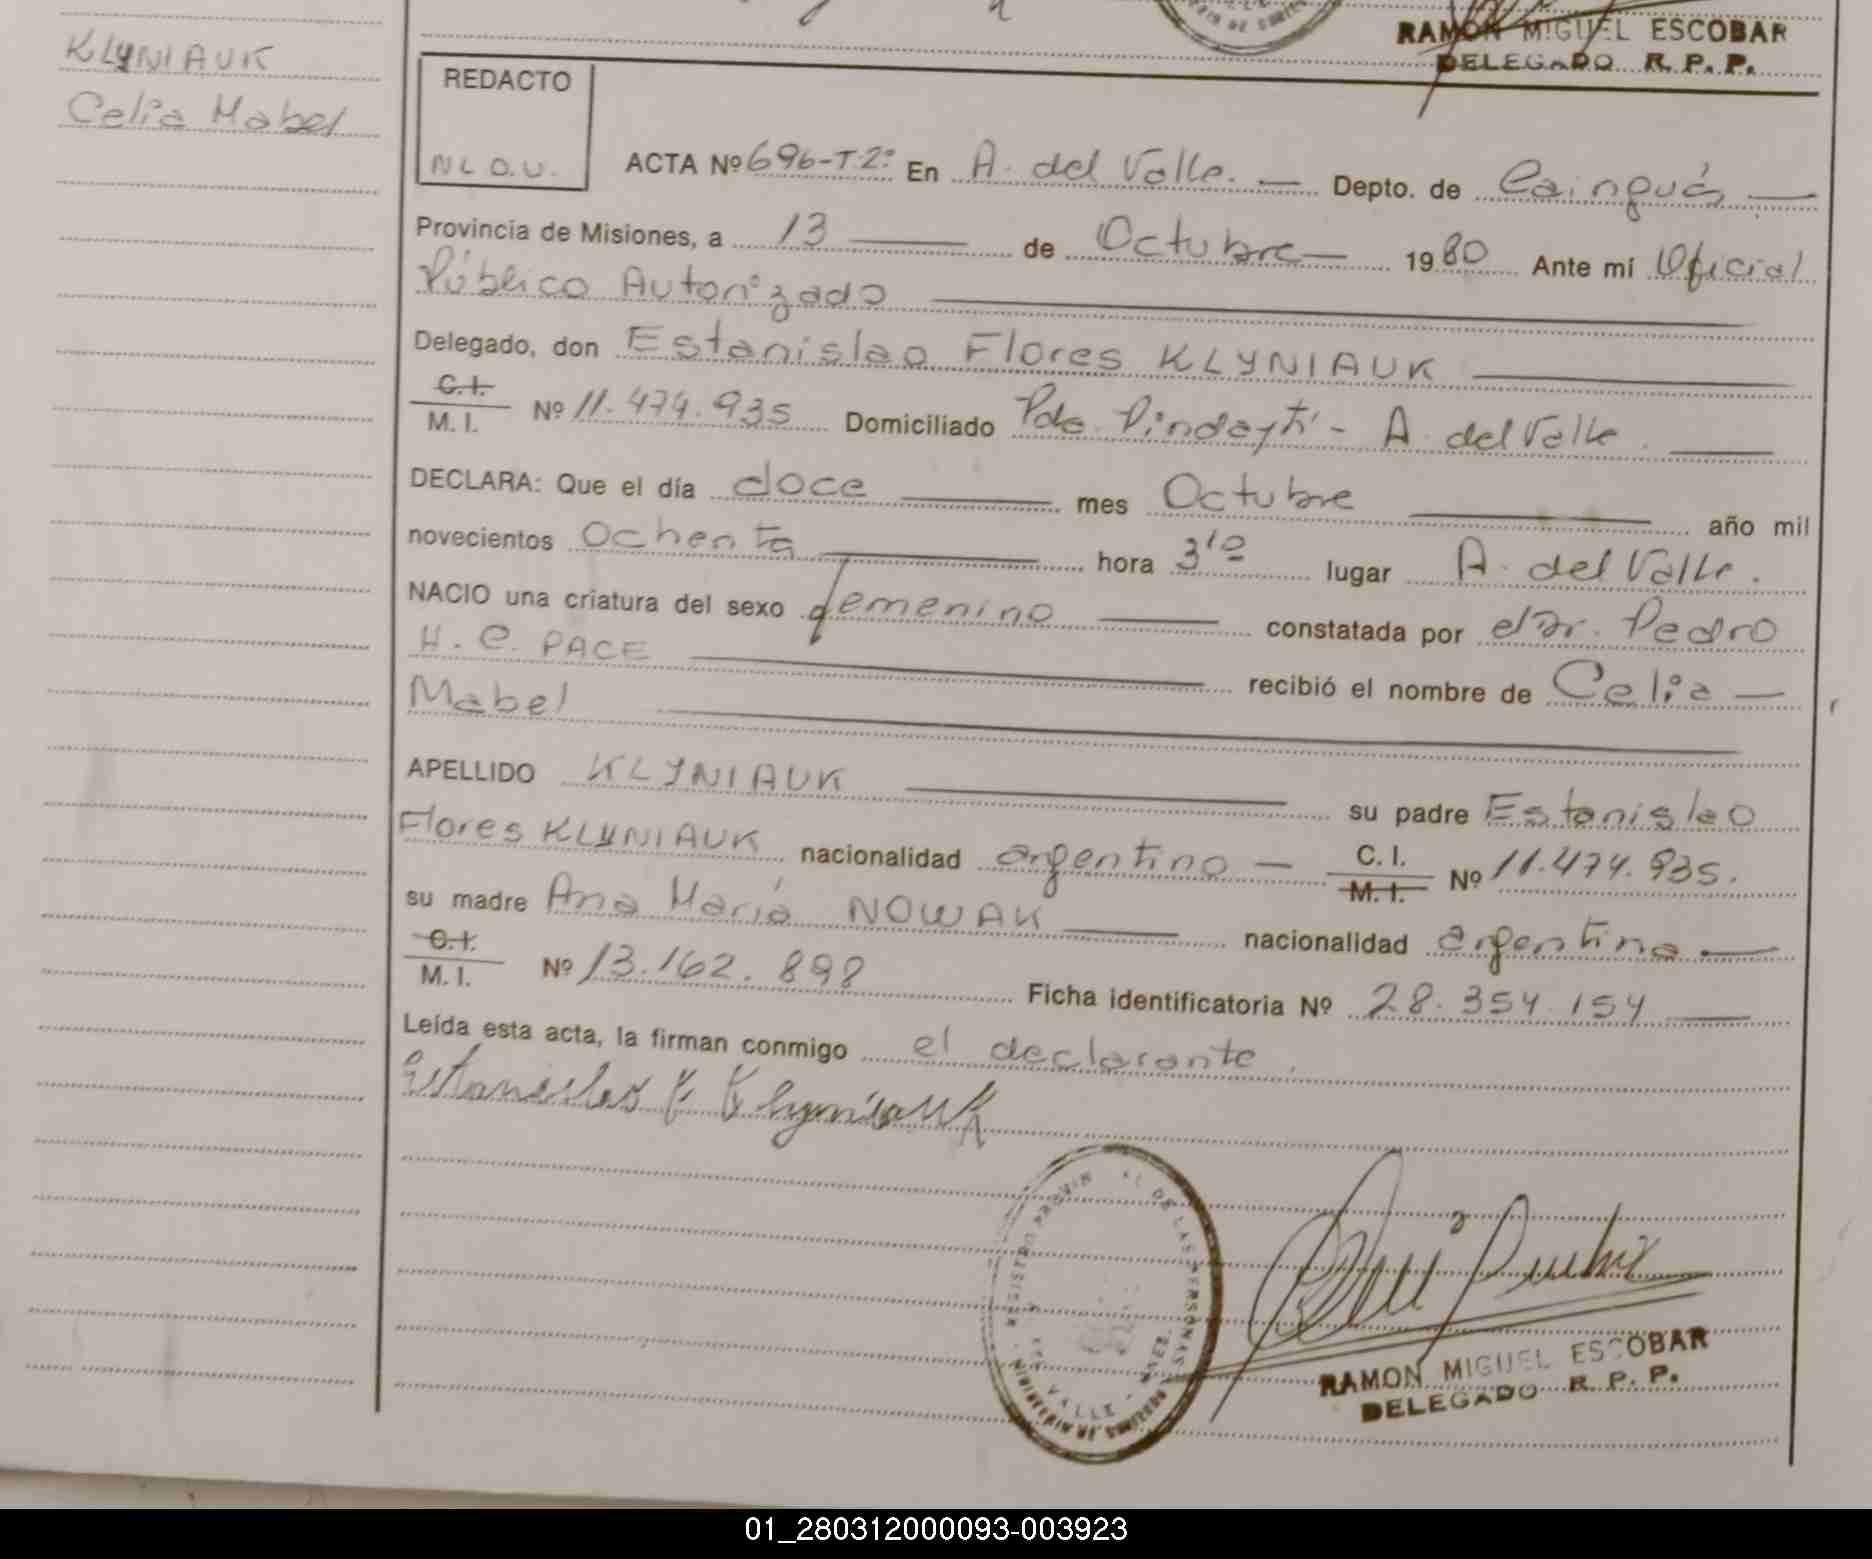 RAMON MIGUEL ESCOBAR
DELEGADO R. P. P.
KLYNIAUK
Celia Mabel
REDACTO
N L O. U.
ACTA Nº 696-T.2º En A. del Valle. — Depto. de Cainguás —
Provincia de Misiones, a 13 — de Octubre — 19 80 Ante mí Oficial
Público Autorizado
Delegado, don Estanislao Flores KLYNIAUK
C.I.
M. I. Nº 11.474.935 Domiciliado Pdo. Pindaytí - A. del Valle.
DECLARA: Que el día doce — mes Octubre — año mil
novecientos Ochenta — hora 3'º lugar A. del Valle.
NACIO una criatura del sexo femenino — constatada por el Dr. Pedro
H. C. PACE — recibió el nombre de Celia —
Mabel
APELLIDO KLYNIAUK — su padre Estanislao
Flores KLYNIAUK nacionalidad argentino — C. I. M. I. Nº 11.474.935.
su madre Ana María NOWAK — nacionalidad argentina —
C.I.
M. I. Nº 13.162.898 Ficha identificatoria Nº 28.354.154 —
Leída esta acta, la firman conmigo el declarante.
Estanislao F. Klyniauk
REGISTRO PROVIN AL DE LAS PERSONAS
VALLE
RAMON MIGUEL ESCOBAR
DELEGADO R. P. P.
01_280312000093-003923